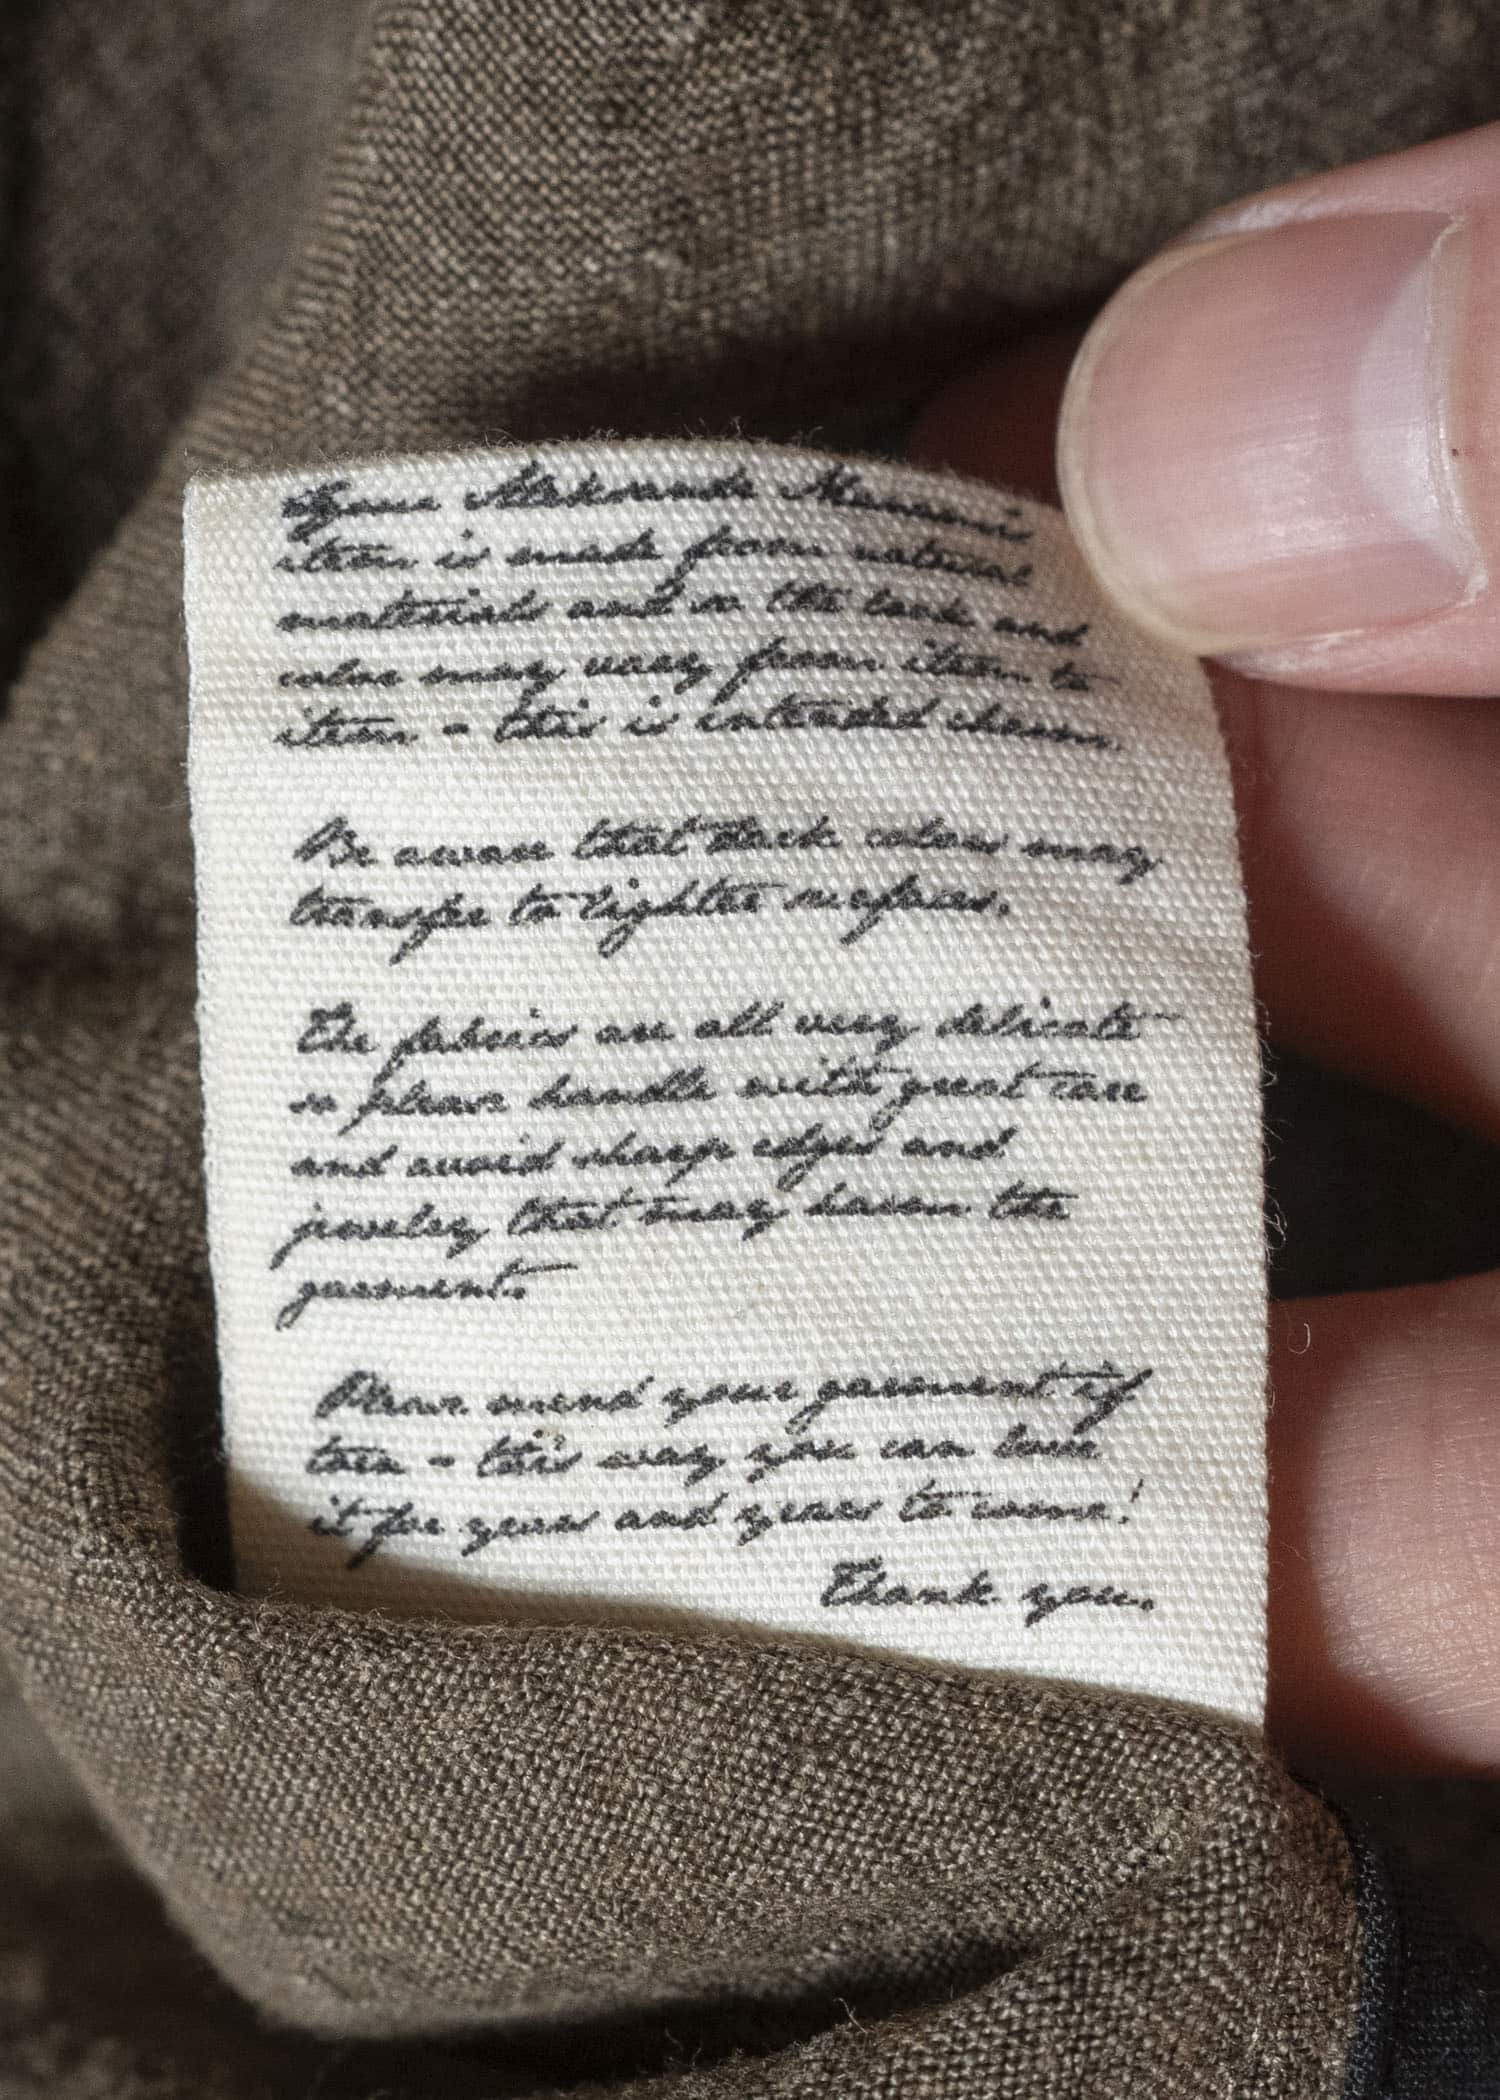 Your Aleksandr Manamis
item is made from natural
materials and so the look and
color may vary from item to
item - this is intended charm.
Be aware that dark colors may
transfer to lighter surfaces.
The fabrics are all very delicate
so please handle with great care
and avoid sharp edges and
jewelry that may harm the
garment.
Please mend your garment if
torn - this way you can love
it for years and years to come!
Thank you.